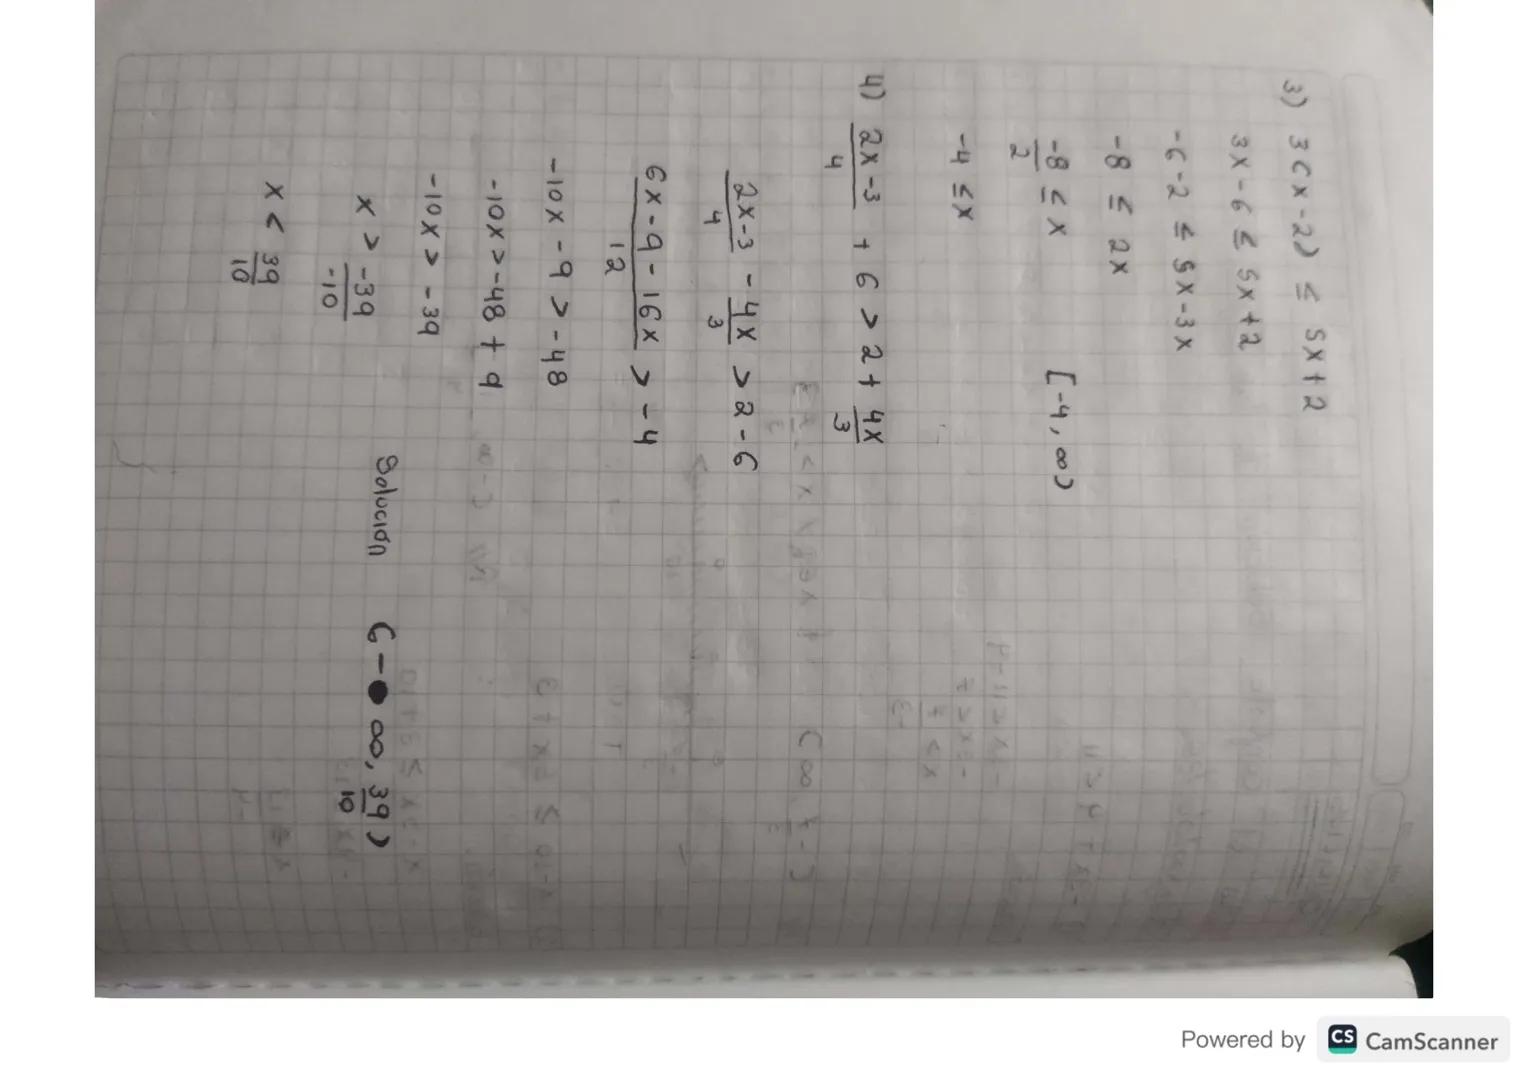 3) 3(x-2) ≤ 5x+2
3x-6 ≤ 5x+2
-6-2 ≤ 5x-3x
-8 ≤ 2x
-8/2 ≤ x [-4, ∞)
-4 ≤ x
4) 2x-3/4 + 6 > 2 + 4x/3
2x-3/4 - 4x/3 > 2-6
6x-9-16x/12 > -4
-10x-9 > -48
-10x > -48+9
-10x > -39
x > -39/-10 Solución (-∞, 39/10)
x < 39/10
Powered by CS CamScanner